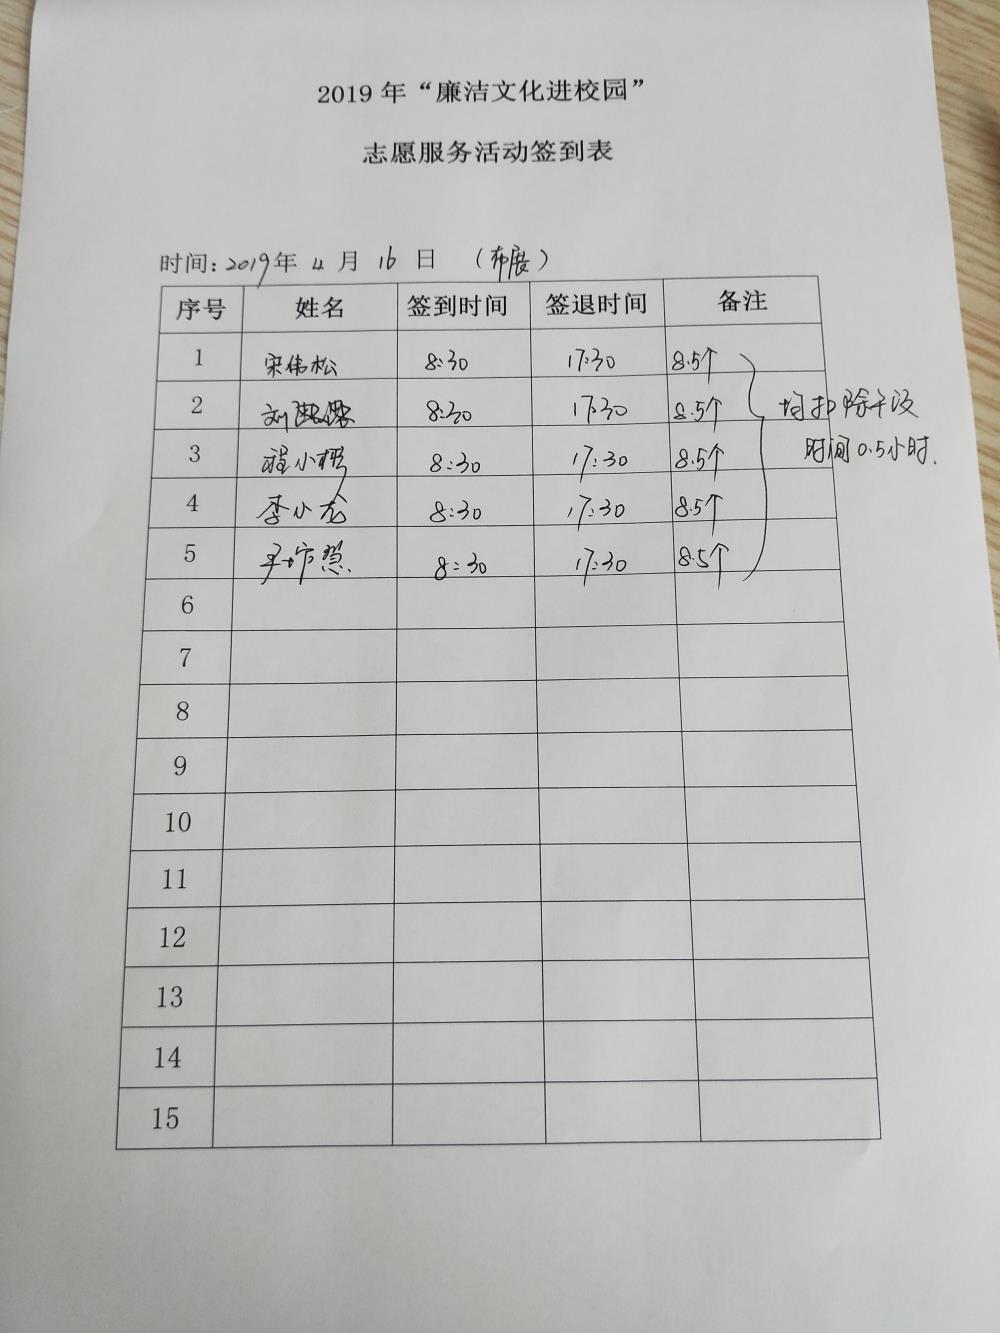 2019年“廉洁文化进校园”
志愿服务活动签到表
时间:2019年 4 月 16 日 (布展)
序号 姓名 签到时间 签退时间 备注
1 宋伟松 8:30 17:30 8.5个
2 刘 8:30 17:30 8.5个
均扣除午饭
3 程小 8:30 17:30 8.5个
时间0.5小时.
4 李小龙 8:30 17:30 8.5个
5 8:30 17:30 8.5个
6
7
8
9
10
11
12
13
14
15